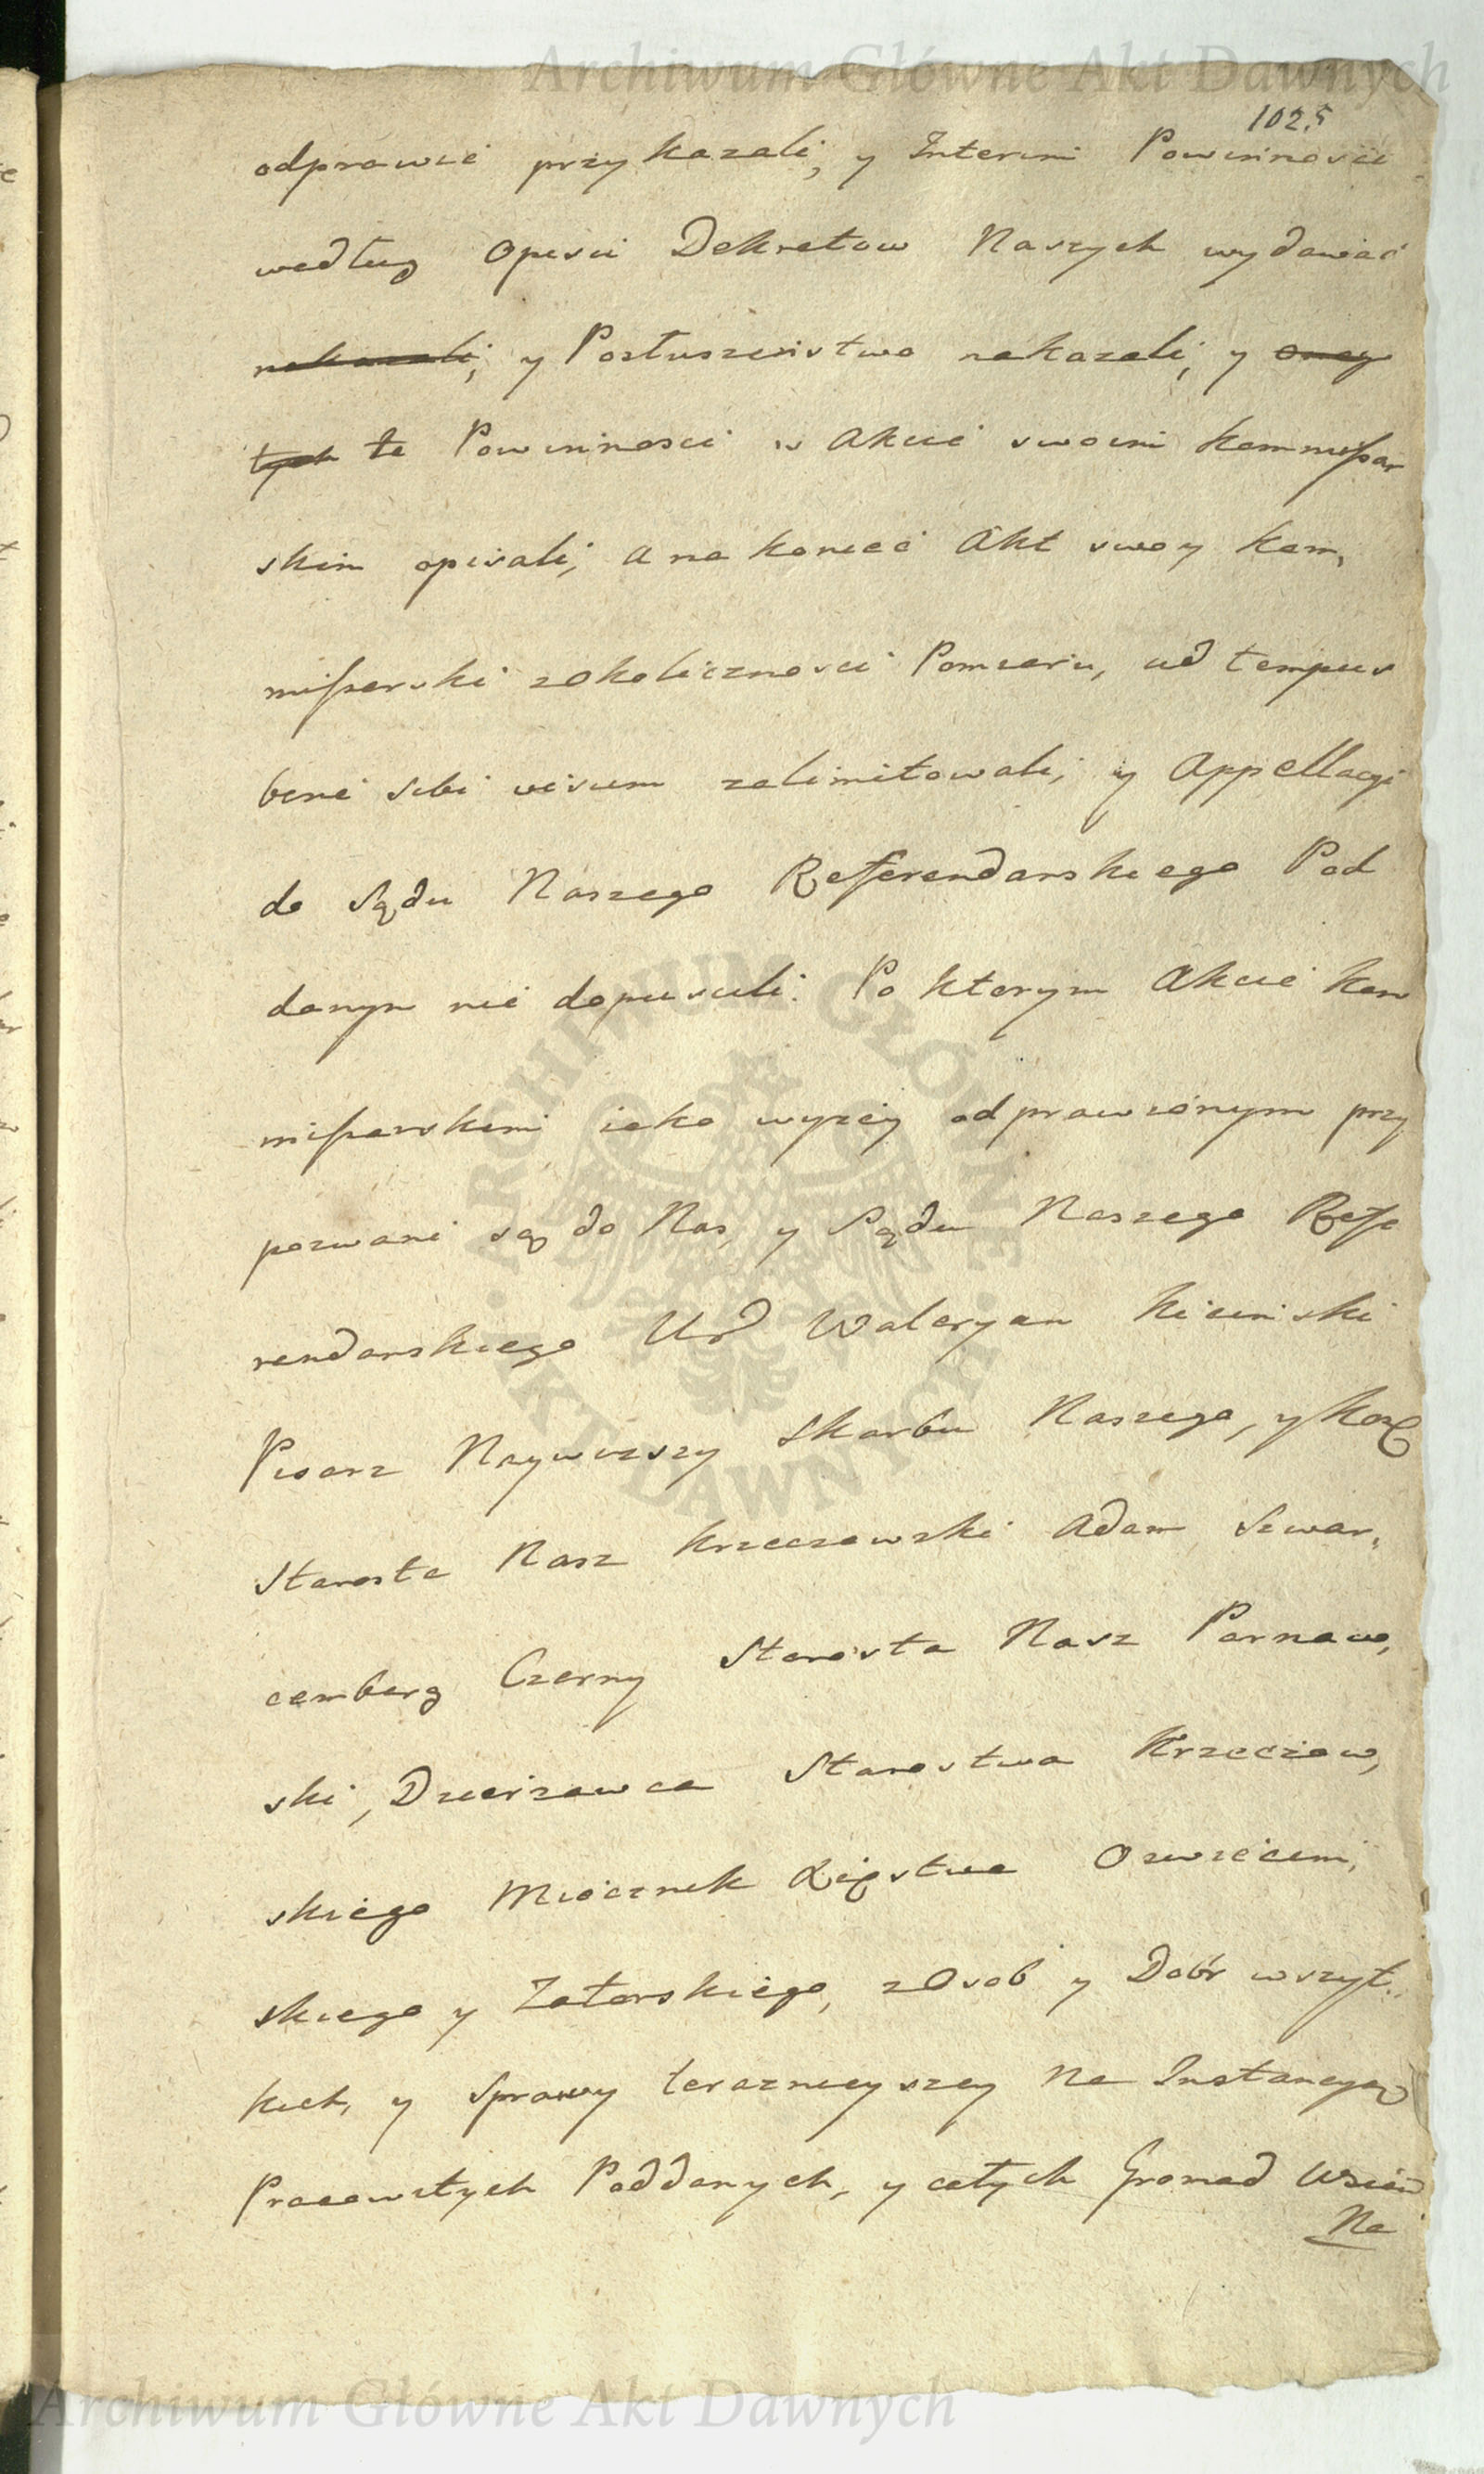 Archiwum Główne Akt Dawnych
102.5
odprawić przykazali, y Interim Powinności
według Opisu Dekretow Naszych wydawać
nakazali, y Posłuszeństwo nakazali, y oney
tych te Powinności w Akcie swoim Kommissar
skim opisali, a na koniec Akt swoy Kom,
missarski z okoliczności Pomiaru, ad tempus
bene sibi visum zalimitowali, y Appellacyi
do Sądu Naszego Referendarskiego Pod
danym nie dopuścili. Po ktorym Akcie Kom
missarskim iako wyżey odprawionym przy
pozwani są do Nas, y Sądu Naszego Refe
rendarskiego Ur Waleryan Kiciński
Pisarz Naywyższy Skarbu Naszego, y Kor
Starosta Nasz Krzeczowski Adam Szwar,
cemberg Czerny Starosta Nasz Parnaw,
ski, Dzierzawca Starostwa Krzeczow,
skiego Miecznik Xięstwa Oswiecim,
skiego y Zatorskiego, z Osob y Dobr wszyt,
kich, y Sprawy teraznieyszey Na Instancyą
Pracowitych Poddanych, y całych Gromad Wsiow
Na
ARCHIWUM GŁÓWNE AKT DAWNYCH
Archiwum Główne Akt Dawnych